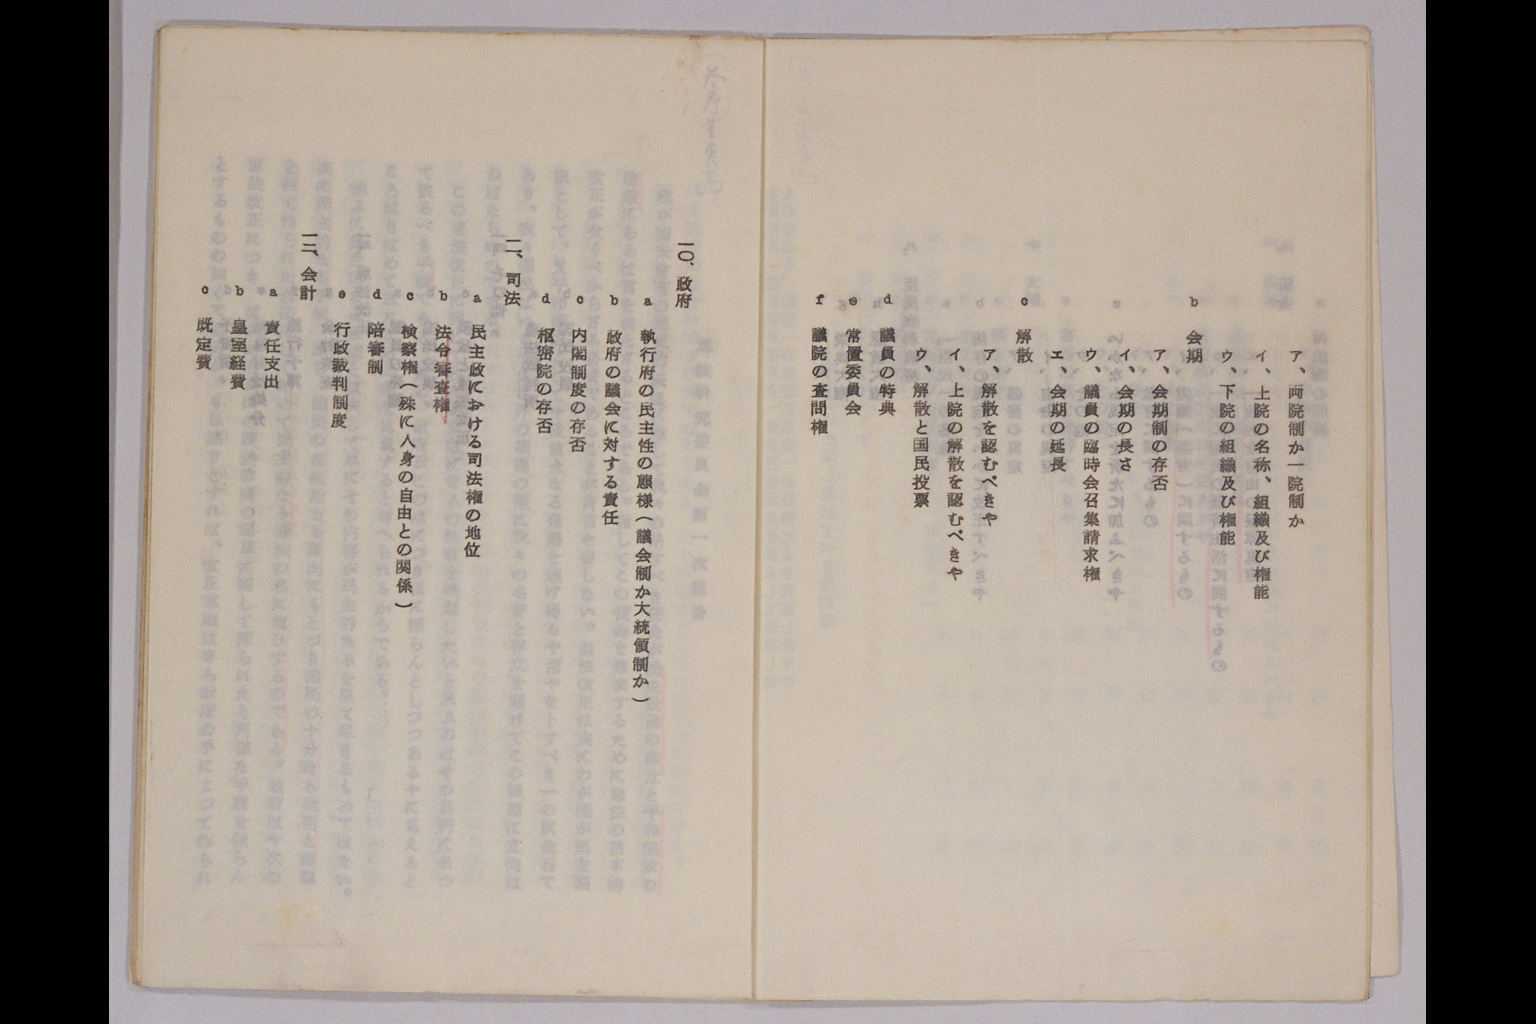 ア、両院制か一院制か
イ、上院の名称、組織及び権能
ウ、下院の組織及び権能
b 会期
ア、会期制の存否
イ、会期の長さ
ウ、議員の臨時会召集請求権
エ、会期の延長
c 解散
ア、解散を認むべきや
イ、上院の解散を認むべきや
ウ、解散と国民投票
d 議員の特典
e 常置委員会
f 議院の査問権
一〇、政府
a 執行府の民主性の態様(議会制か大統領制か)
b 政府の議会に対する責任
c 内閣制度の存否
d 枢密院の存否
一一、司法
a 民主政における司法権の地位
b 法令審査権
c 検察権(殊に人身の自由との関係)
d 陪審制
e 行政裁判制度
一二、会計
a 責任支出
b 皇室経費
c 既定費